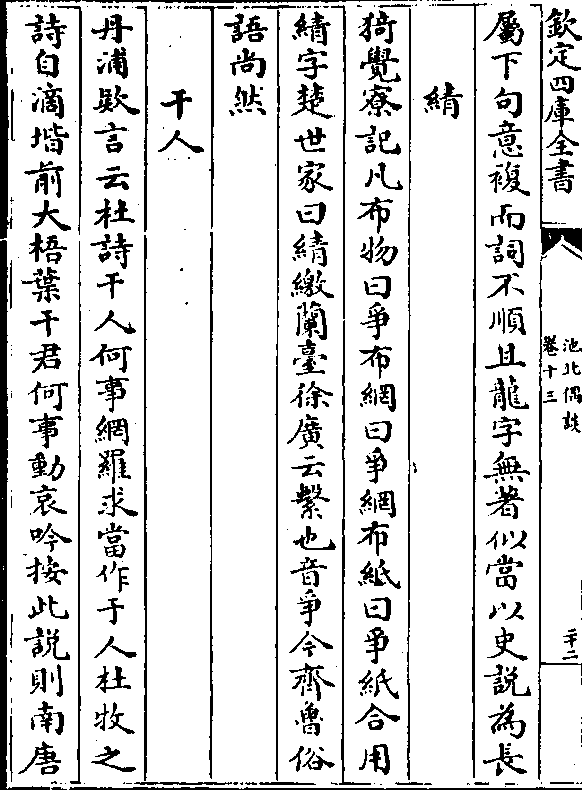 欽定四庫全書
池北偶談
卷十三
二十二
屬下句意複而詞不順且龍字無著似當以史説為長
綪
猗覺寮記凡布物曰爭布網曰爭網布紙曰爭紙合用
綪字楚世家曰綪繳蘭臺徐廣云縈也音爭今齊魯俗
語尚然
干人
丹浦欵言云杜詩干人何事網羅求當作于人杜牧之
詩自滴堦前大梧葉干君何事動哀吟按此説則南唐